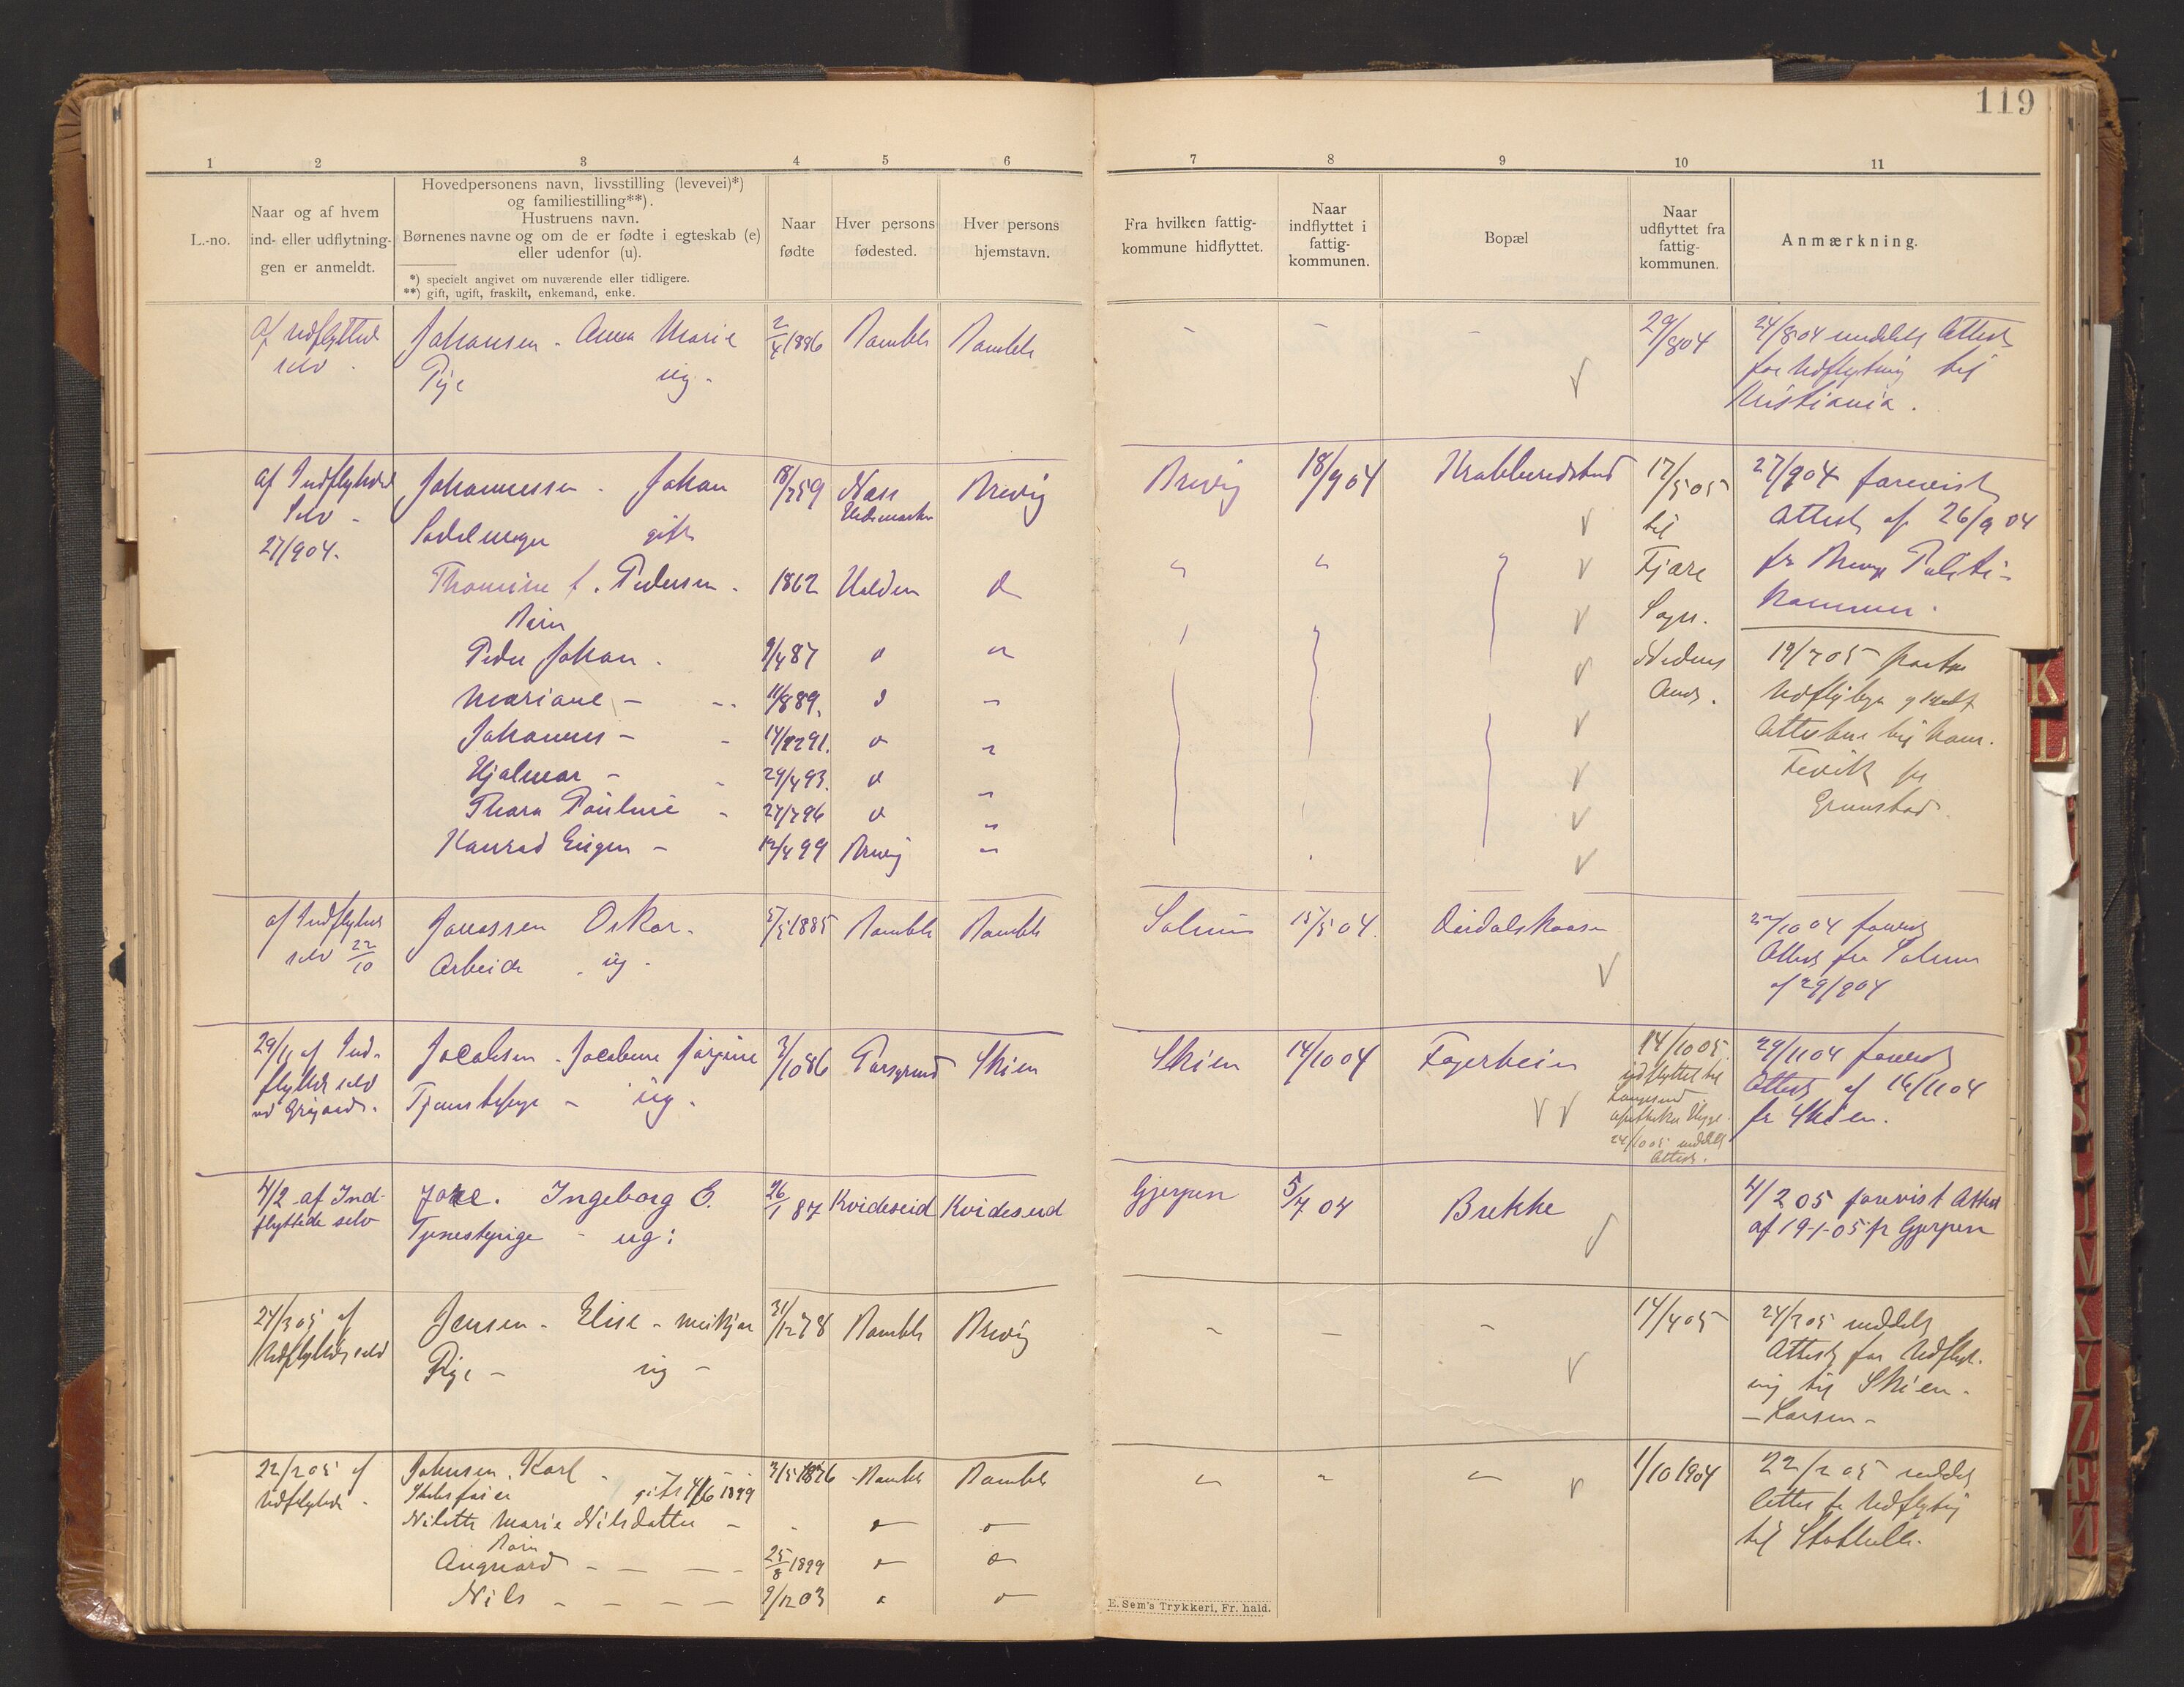 119
1 2 3 4 5 6 7 8 9 10 11
L.-no.
Naar og af hvem
ind- eller udflytnin-
gen er anmeldt.
Hovedpersonens navn, livsstilling (levevei)*)
og familiestilling**).
Hustruens navn.
Børnenes navne og om de er fødte i egteskab (e)
eller udenfor (u).
*) specielt angivet om nuværende eller tidligere.
**) gift, ugift, fraskilt, enkemand, enke.
Naar
fødte
Hver persons
fødested.
Hver persons
hjemstavn.
Fra hvilken fattig-
kommune hidflyttet.
Naar
indflyttet i
fattig-
kommunen.
Bopæl
Naar
udflyttet fra
fattig-
kommunen.
Anmærkning.
af Udflyttede
selv
Johansen - Anna Marie
Pige ug.
2/4 1886 Bamble Bamble
- - -
29/8 04
24/8 04 meddelt Attest
for Udflytning til
Kristiania.
af Indflyttede
Selv -
27/9 04.
Johannessen - Johan
gift
18/7 59 Næss
Hedemarken
Brevig
Brevig 18/9 04
17/5 05
til
Fjære
Sogn.
Nedenes
Amt.
27/9 04 forevist
Attest af 26/9 04
fr Brevigs Politi-
kammer.
Thomine f. Pedersen. 1862 Halden
Børn
Peder Johan. 9/4 87
Mariane - 11/8 89.
Johannes - 14/12 91.
Hjalmar - 29/4 93.
Thora Pauline - 27/7 96
Konrad Eugen - 12/4 99 Brevig
19/7 05
Fevik pr
Grimstad.
af Indflyttede
selv 22/10
Jonassen Oskar.
Arbeider ug.
5/5 1885 Bamble Bamble
Solum 15/5 04.
22/10 04 forevist
Attest fra Solum
af 29/8 04
29/11 af Ind-
flyttede selv
Jacobsen - Jacobine Jørgine
Tjenestepige - ug.
3/10 86 Porsgrund Skien
Skien 14/10 04 Fagerheim
14/10 05
udflyttet til
Langesund
24/10 05 meddelt
Attest.
29/11 04 forevist
Attest af 16/11 04
fr Skien.
4/2 af Ind-
flyttede selv
Ingeborg E.
Tjenestepige - ug:
26/1 87 Kvideseid Kvideseid
Gjerpen 5/7 04 Brekke
4/2 05 forevist Attest
af 19-1-05 fr Gjerpen
24/3 05 af
Udflyttede selv
Jensen - Elise -
Pige - ug -
31/12 78 Bamble Brevig
- - -
14/4 05
24/3 05 meddelt
Attest for Udflyt-
ning til Skien.
- Larsen -
22/2 05 af
Udflyttede.
Johnsen, Karl
gift 4/6 1899
3/5 1876 Bamble Bamble
1/10 1904
22/2 05 meddelt
Attest for Udflytning
til Stathelle.
Nilette Marie Nilsdatter -
Børn
Aagvard - 25/8 1899
Nils - 9/12 03
E. Sem's Trykkeri, Fr. hald.
K
L